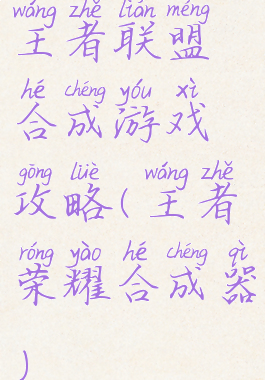 wáng zhě lián méng
王者联盟
hé chéng yóu xì
合成游戏
gōng lüè wáng zhě
攻略(王者
róng yào hé chéng qì
荣耀合成器
)